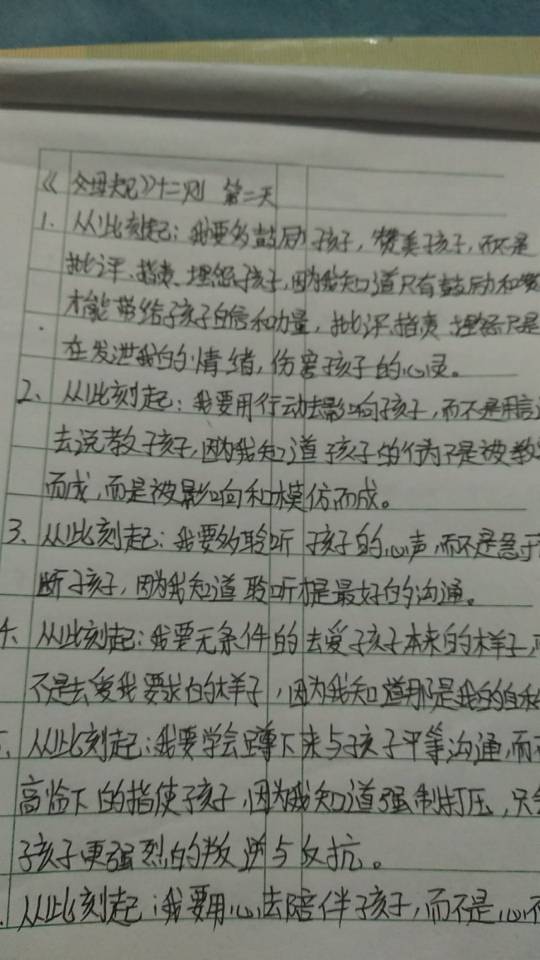 《父母规》十二则 第二天
1. 从此刻起：我要多鼓励孩子，赞美孩子，而不是
批评、指责、埋怨孩子，因为我知道只有鼓励和赞
才能带给孩子自信和力量，批评、指责、埋怨只是
在发泄我的情绪，伤害孩子的心灵。
2、从此刻起：我要用行动去影响孩子，而不是用言
去说教孩子，因为我知道孩子的行为不是被教
而成，而是被影响和模仿而成。
3、从此刻起：我要多聆听孩子的心声，而不是急于
断孩子，因为我知道聆听才是最好的沟通。
4、从此刻起：我要无条件的去爱孩子本来的样子，
不是去爱我要求的样子，因为我知道那是我的自私
从此刻起：我要学会蹲下来与孩子平等沟通，而
高临下的指使孩子，因为我知道强制打压，只会
孩子更强烈的叛逆与反抗。
从此刻起：我要用心去陪伴孩子，而不是心不